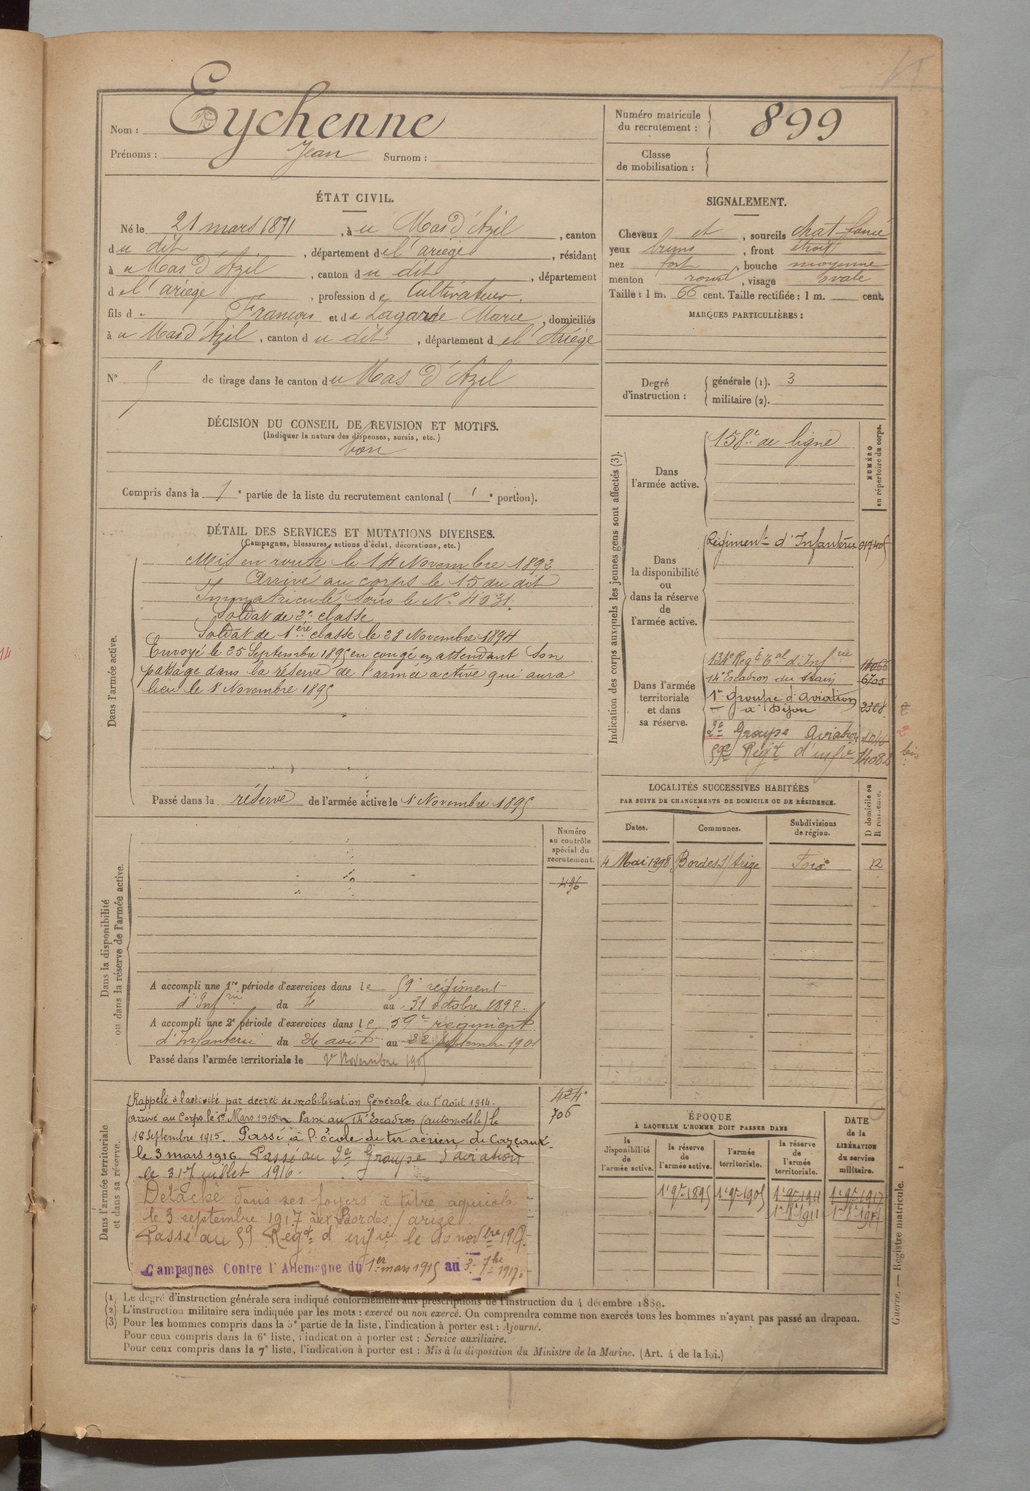 Nom : Eychenne
Prénoms : Jean Surnom :
Numéro matricule du recrutement : 899
Classe de mobilisation :
ÉTAT CIVIL.
Né le 21 mars 1871, à u Mas d'Azil, canton
d u dit, département de l'ariège, résidant
à u Mas d'Azil, canton d u dit, département
d e l'ariège, profession de Cultivateur.
fils d e François et d e Lagarde Marie, domiciliés
à u Mas d'Azil, canton d u dit, département d e l'Ariège
N° 5 de tirage dans le canton du Mas d'Azil
SIGNALEMENT.
Cheveux et, sourcils chat. foncé
yeux bruns, front étroit
nez fort, bouche moyenne
menton rond, visage Ovale
Taille : 1 m. 66 cent. Taille rectifiée : 1 m. cent.
MARQUES PARTICULIÈRES :
Degré d'instruction : générale (1). 3
militaire (2).
DÉCISION DU CONSEIL DE REVISION ET MOTIFS.
(Indiquer la nature des dispenses, sursis, etc.)
bon
Compris dans la 1e partie de la liste du recrutement cantonal ( 1e portion).
DÉTAIL DES SERVICES ET MUTATIONS DIVERSES.
(Campagnes, blessures, actions d'éclat, décorations, etc.)
Dans l'armée active.
Mis en route le 14 Novembre 1892
Arrivé au corps le 15 du dit
Immatriculé sous le N° 4031.
Soldat de 2e classe
Soldat de 1ère classe le 28 Novembre 1894
Envoyé le 25 Septembre 1895 en congé en attendant son
passage dans la réserve de l'armée active qui aura
lieu le 1er Novembre 1895
Passé dans la réserve de l'armée active le 1er Novembre 1895
Indication des corps auxquels les jeunes gens sont affectés (3).
NUMÉRO au répertoire du corps.
Dans l'armée active.
158e de ligne
Dans la disponibilité ou dans la réserve de l'armée active.
Régiment d'Infanterie
Dans l'armée territoriale et dans sa réserve.
134e Régt Tal d'Infrie
14e Escadron du train 6705
1er Groupe d'Aviation
à Dijon 2308
2e Groupe Aviation
59e Régt d'infie
bis
LOCALITÉS SUCCESSIVES HABITÉES
PAR SUITE DE CHANGEMENTS DE DOMICILE OU DE RÉSIDENCE.
Dates. Communes. Subdivisions de région. D domicile ou R résidence.
4 Mai 1898 Bordes s/ Arize Foix R
Dans la disponibilité ou dans la réserve de l'armée active.
Numéro au contrôle spécial du recrutement.
496
A accompli une 1re période d'exercices dans le 59e régiment
d'Infrie du 4 au 31 octobre 1897.
A accompli une 2e période d'exercices dans le 59e régiment
d'Infanterie du 26 août au 22 Septembre 1901
Passé dans l'armée territoriale le 1er Novembre 1905
Dans l'armée territoriale et dans sa réserve.
424
706
Rappelé à l'activité par décret de mobilisation Générale du 1er Août 1914.
Arrivé au Corps le 1er Mars 1915. Passé au 14e Escadron (automobile) le
18 Septembre 1915. Passé à l'école de tir aérien de Cazaux
le 3 mars 1916. Passé au 2e Groupe d'aviation
le 31 juillet 1916.
Détaché dans ses foyers à titre agricole
le 3 septembre 1917 aux Bordes s/ arize
Passé au 59 Régt d'infie le
Campagnes Contre l'Allemagne du 1er mars 1915 au 3 7bre 1917.
ÉPOQUE
À LAQUELLE L'HOMME DOIT PASSER DANS
la disponibilité de l'armée active. la réserve de l'armée active. l'armée territoriale. la réserve de l'armée territoriale.
DATE de la LIBÉRATION du service militaire.
1er 9bre 1895 1er 9bre 1905 1er 9bre 1911 1er 9bre 1917
(1) Le degré d'instruction générale sera indiqué conformément aux prescriptions de l'instruction du 4 décembre 1889.
(2) L'instruction militaire sera indiquée par les mots : exercé ou non exercé. On comprendra comme non exercés tous les hommes n'ayant pas passé au drapeau.
(3) Pour les hommes compris dans la 5e partie de la liste, l'indication à porter est : Ajourné.
Pour ceux compris dans la 6e liste, l'indication à porter est : Service auxiliaire.
Pour ceux compris dans la 7e liste, l'indication à porter est : Mis à la disposition du Ministre de la Marine. (Art. 4 de la loi.)
Guerre. — Registre matricule. 1